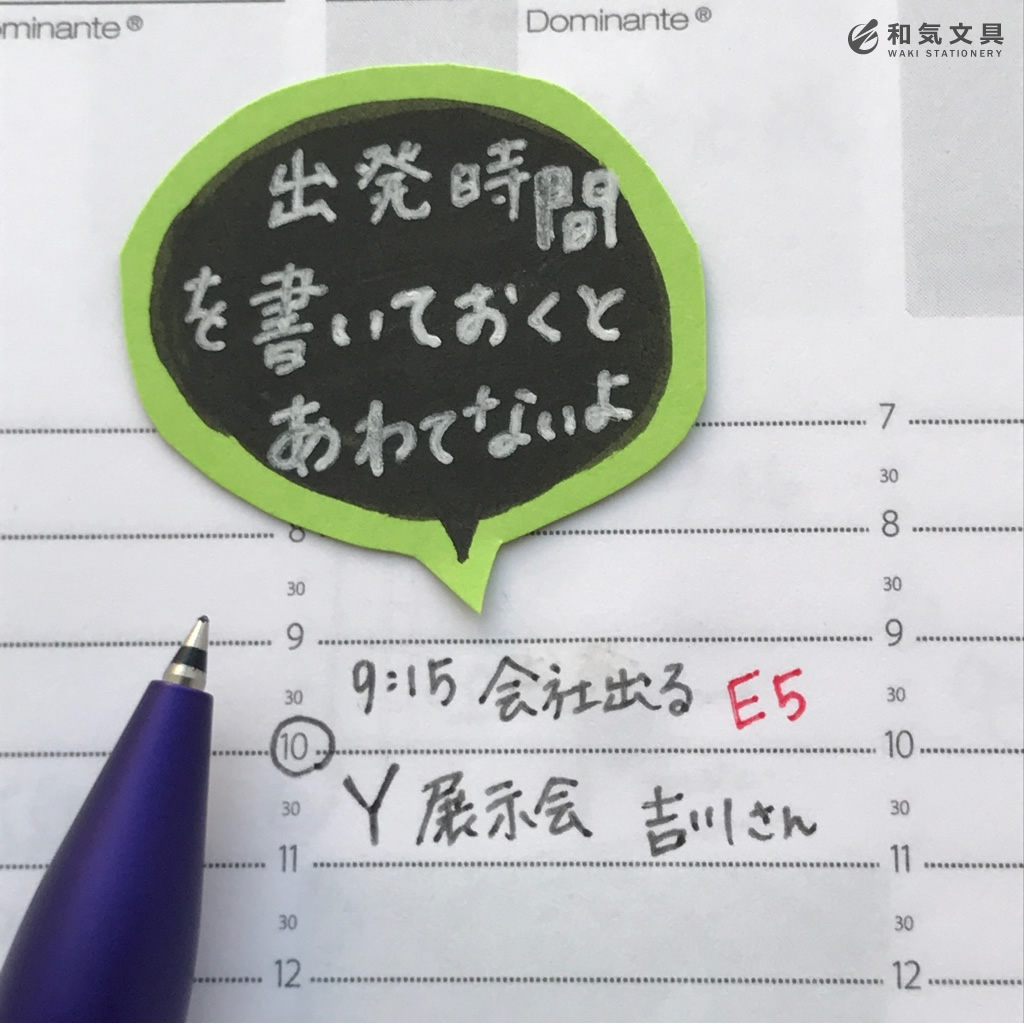 ominante®
Dominante®
和気文具
WAKI STATIONERY
出発時間
を書いておくと
あわてないよ
7
30
8 8
30 30
9 9
9:15 会社出る E5
30 30
10 10
Y 展示会 吉川さん
30 30
11 11
30 30
12 12